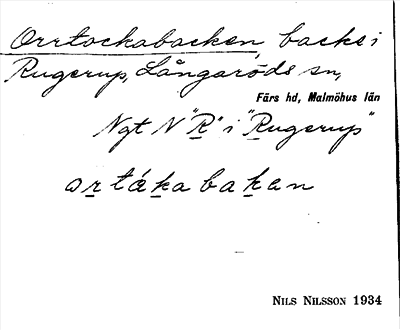 Orrtackabacken, backe i
Rugerup, Långaröds sn,
Färs hd, Malmöhus län
Ngt N "R" i "Rugerup"
ortákabakan
NILS NILSSON 1934